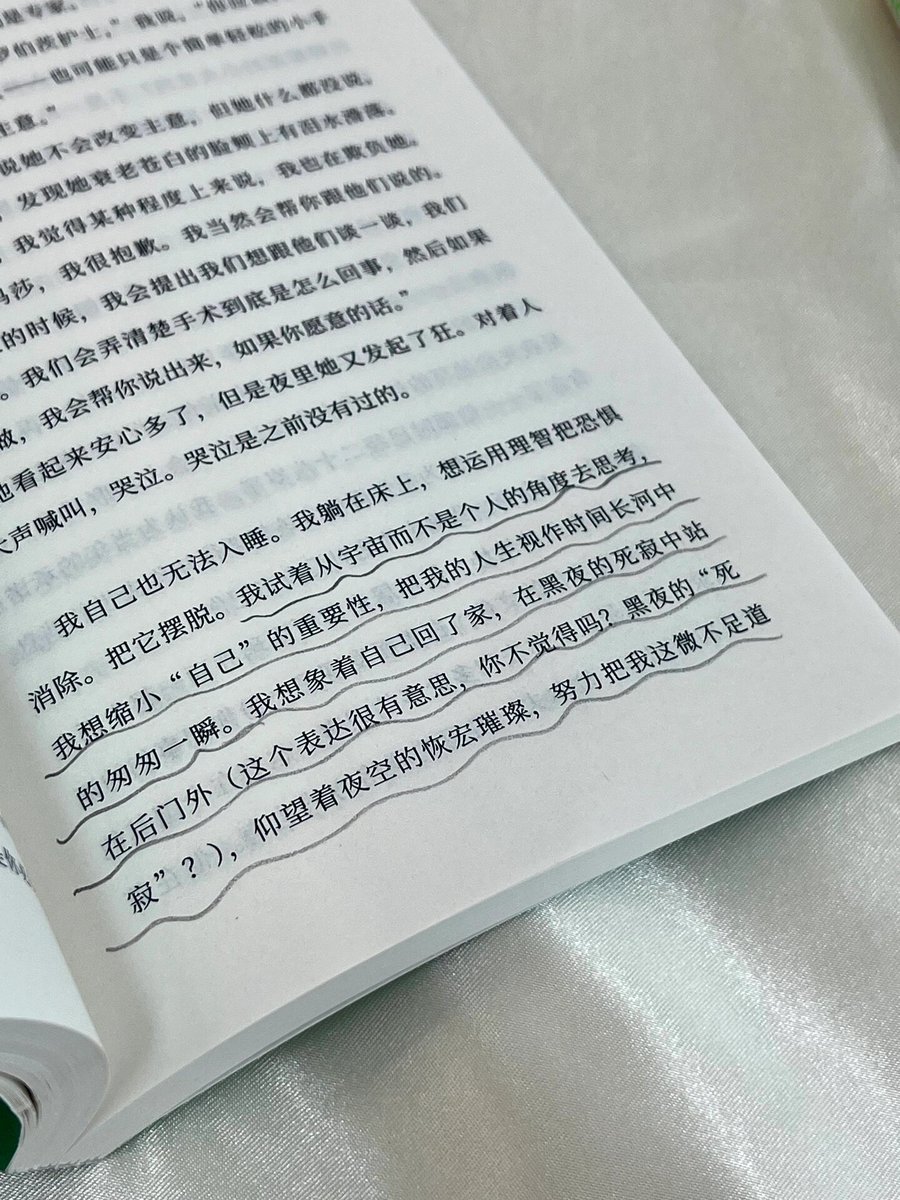 是专家。
护士。”我说。
——也可能只是个简单轻松的小手
主意。”
说她不会改变主意，但她什么都没说。
，发现她衰老苍白的脸颊上有泪水滑落。
，我觉得某种程度上来说，我也在欺负她。
玛莎，我很抱歉。我当然会帮你跟他们说的。
的时候，我会提出我们想跟他们谈一谈，我们
。我们会弄清楚手术到底是怎么回事，然后如果
做，我会帮你说出来，如果你愿意的话。”
她看起来安心多了，但是夜里她又发起了狂。对着人
大声喊叫，哭泣。哭泣是之前没有过的。
我自己也无法入睡。我躺在床上，想运用理智把恐惧
消除。把它摆脱。我试着从宇宙而不是个人的角度去思考，
我想缩小“自己”的重要性，把我的人生视作时间长河中
的匆匆一瞬。我想象着自己回了家，在黑夜的死寂中站
在后门外（这个表达很有意思，你不觉得吗？黑夜的“死
寂”？），仰望着夜空的恢宏璀璨，努力把我这微不足道